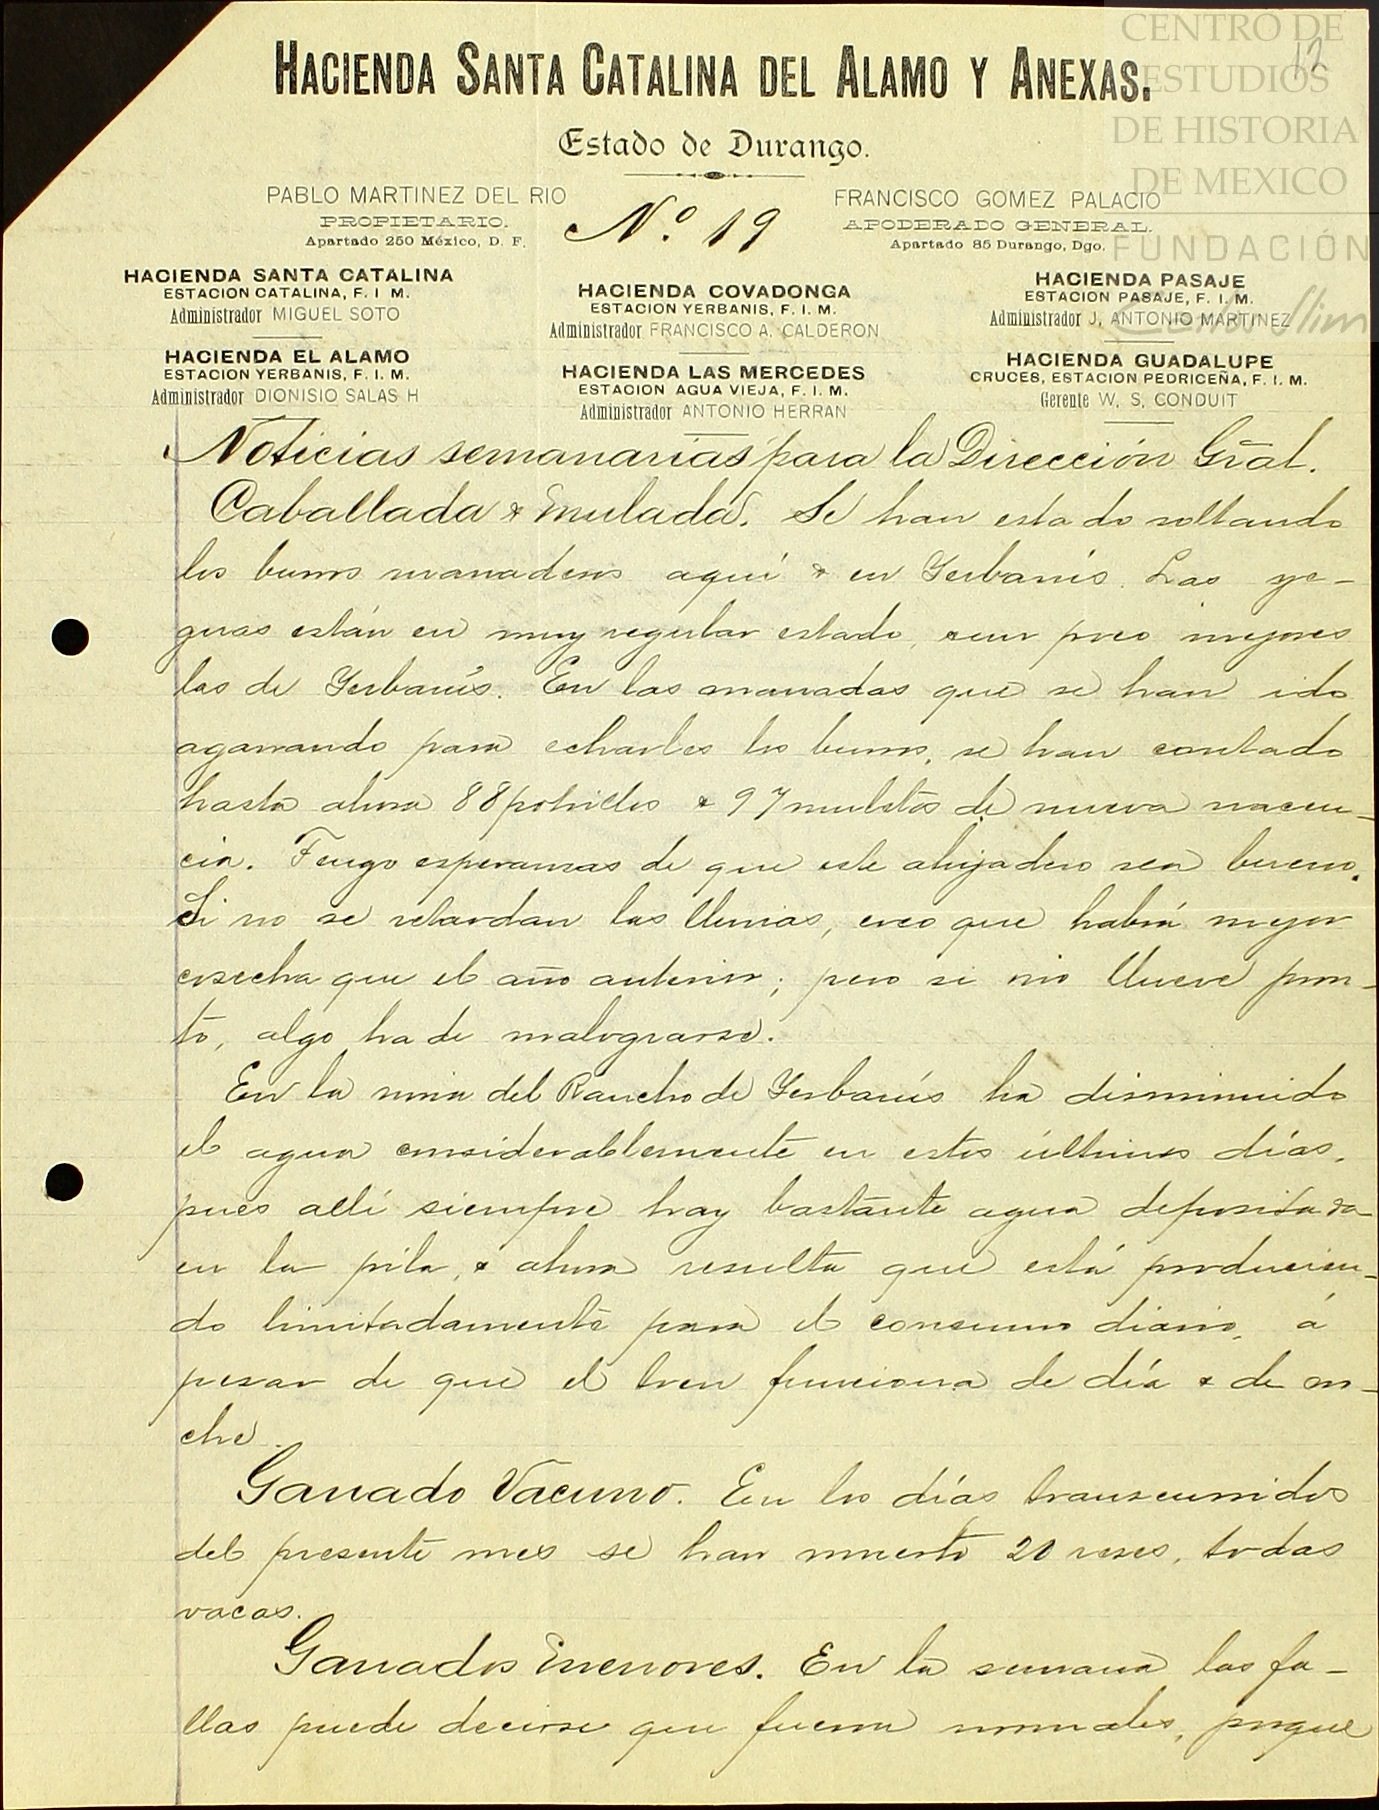 CENTRO DE
ESTUDIOS
DE HISTORIA
DE MEXICO
FUNDACIÓN
Carlos Slim
12
HACIENDA SANTA CATALINA DEL ALAMO Y ANEXAS.
Estado de Durango.
PABLO MARTINEZ DEL RIO
PROPIETARIO.
Apartado 250 México, D. F.
Nº. 19
FRANCISCO GOMEZ PALACIO
APODERADO GENERAL.
Apartado 85 Durango, Dgo.
HACIENDA SANTA CATALINA
ESTACION CATALINA, F. I M.
Administrador MIGUEL SOTO
HACIENDA EL ALAMO
ESTACION YERBANIS, F. I. M.
Administrador DIONISIO SALAS H
HACIENDA COVADONGA
ESTACION YERBANIS, F. I. M.
Administrador FRANCISCO A. CALDERON
HACIENDA LAS MERCEDES
ESTACION AGUA VIEJA, F. I. M.
Administrador ANTONIO HERRAN
HACIENDA PASAJE
ESTACION PASAJE, F. I. M.
Administrador J. ANTONIO MARTINEZ
HACIENDA GUADALUPE
CRUCES, ESTACION PEDRICEÑA, F. I. M.
Gerente W. S. CONDUIT
Noticias semanarias para la Dirección Gral.
Caballada & mulada. Se han estado soltando
los burros manaderos aquí & en Yerbanís. Las ye-
guas están en muy regular estado, un poco mejores
las de Yerbanís. En las manadas que se han ido
agarrando para echarles los burros, se han contado
hasta ahora 88 potrillos & 97 muletos de nueva nacen-
cia. Tengo esperanzas de que este ahijadero sea bueno.
Si no se retardan las lluvias, creo que habrá mejor
cosecha que el año anterior; pero si no llueve pron-
to, algo ha de malograrse.
En la noria del Rancho de Yerbanís ha disminuido
el agua considerablemente en estos últimos días,
pues allí siempre hay bastante agua depositada
en la pila, & ahora resulta que está producien-
do limitadamente para el consumo diario, á
pesar de que el tren funciona de día & de no-
che.
Ganado Vacuno. En los días transcurridos
del presente mes se han muerto 20 reses, todas
vacas.
Ganados menores. En la semana las fa-
llas puede decirse que fueron normales, porque